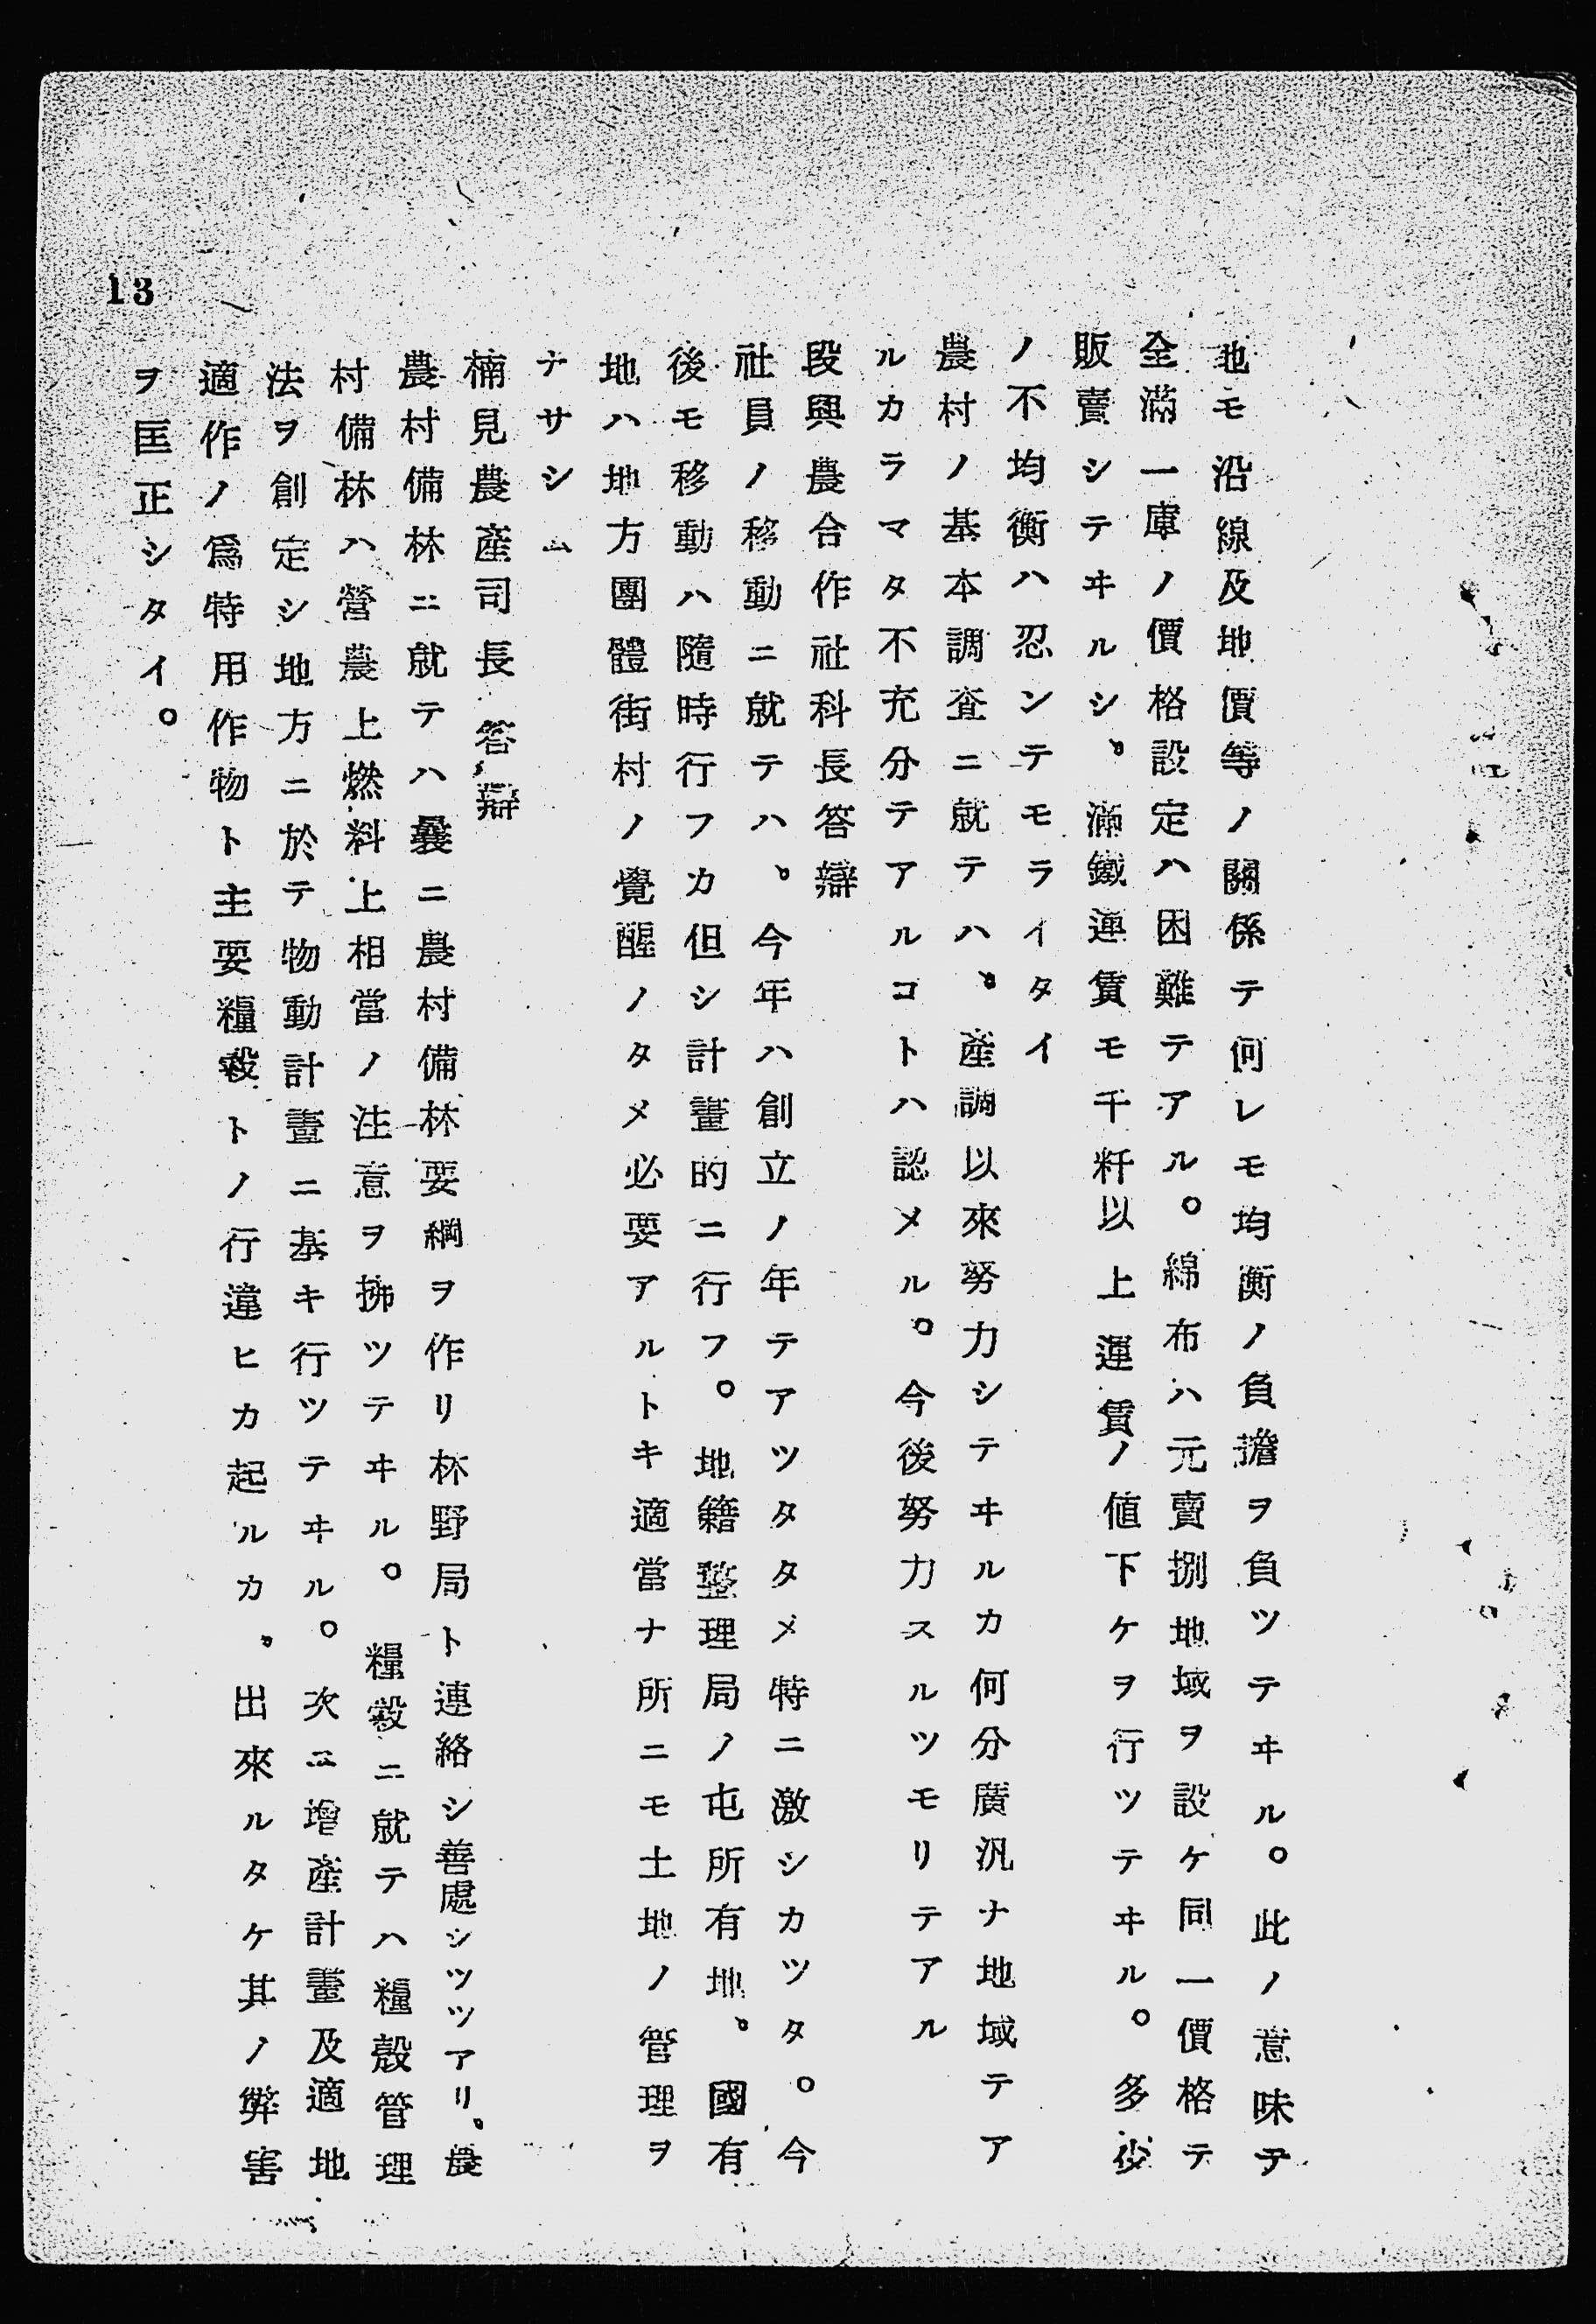 地モ沿線及地價等ノ關係テ何レモ均衡ノ負擔ヲ負ツテヰル。此ノ意味テ
全滿一庫ノ價格設定ハ困難テアル。綿布ハ元賣捌地域ヲ設ケ同一價格テ
販賣シテヰルシ、滿鐵運賃モ千粁以上運賃ノ値下ケヲ行ツテヰル。多少
ノ不均衡ハ忍ンテモライタイ
農村ノ基本調査ニ就テハ、產調以來努力シテヰルカ何分廣汎ナ地域テア
ルカラマタ不充分テアルコトハ認メル。今後努力スルツモリテアル
段興農合作社科長答辯
社員ノ移動ニ就テハ、今年ハ創立ノ年テアツタタメ特ニ激シカツタ。今
後モ移動ハ隨時行フカ但シ計畫的ニ行フ。地籍整理局ノ屯所有地、國有
地ハ地方團體街村ノ覺醒ノタメ必要アルトキ適當ナ所ニモ土地ノ管理ヲ
ナサシム
楠見農產司長答辯
農村備林ニ就テハ曩ニ農村備林要綱ヲ作リ林野局ト連絡シ善處シツツアリ、農
村備林ハ營農上燃料上相當ノ注意ヲ拂ツテヰル。糧穀ニ就テハ糧穀管理
法ヲ創定シ地方ニ於テ物動計畫ニ基キ行ツテヰル。次ニ增產計畫及適地
適作ノ爲特用作物ト主要糧穀トノ行違ヒカ起ルカ、出來ルタケ其ノ弊害
ヲ匡正シタイ。
13